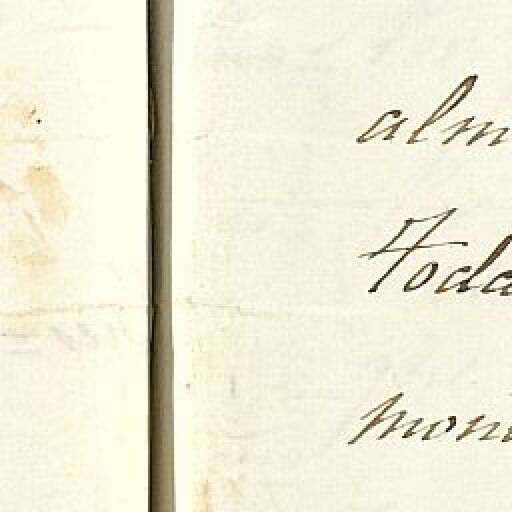 alm
Toda
mon